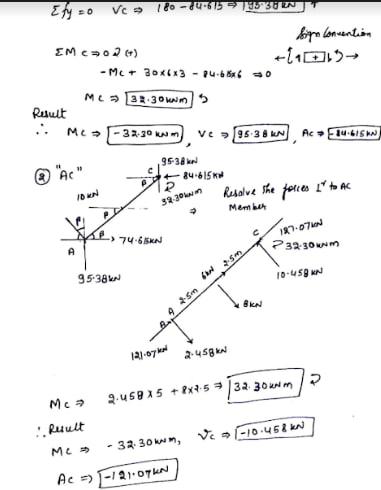 Σfy = 0 Vc ⇒ 180 - 84.615 ⇒ 95.38kN ↑
Sign Convention
ΣMc ⇒ 0 (+)
- Mc + 30×6×3 - 84.615×6 ⇒ 0
Mc ⇒ 32.30kNm
Result
∴ Mc ⇒ -32.30kNm, Vc ⇒ 95.38kN, Ac ⇒ -84.615kN
② "AC"
95.38kN
C
84.615kN
β
32.30kNm
10kN
β
β
β
A
74.65kN
95.38kN
⇒
Resolve the forces ⊥r to AC
Member
C
127.07kN
32.30kNm
10.458kN
2.5m
6kN
8kN
2.5m
A
121.07kN
2.458kN
Mc ⇒ 2.458×5 + 8×2.5 ⇒ 32.30kNm
∴ Result
Mc ⇒ -32.30kNm, Vc ⇒ -10.458kN
Ac ⇒ -121.07kN